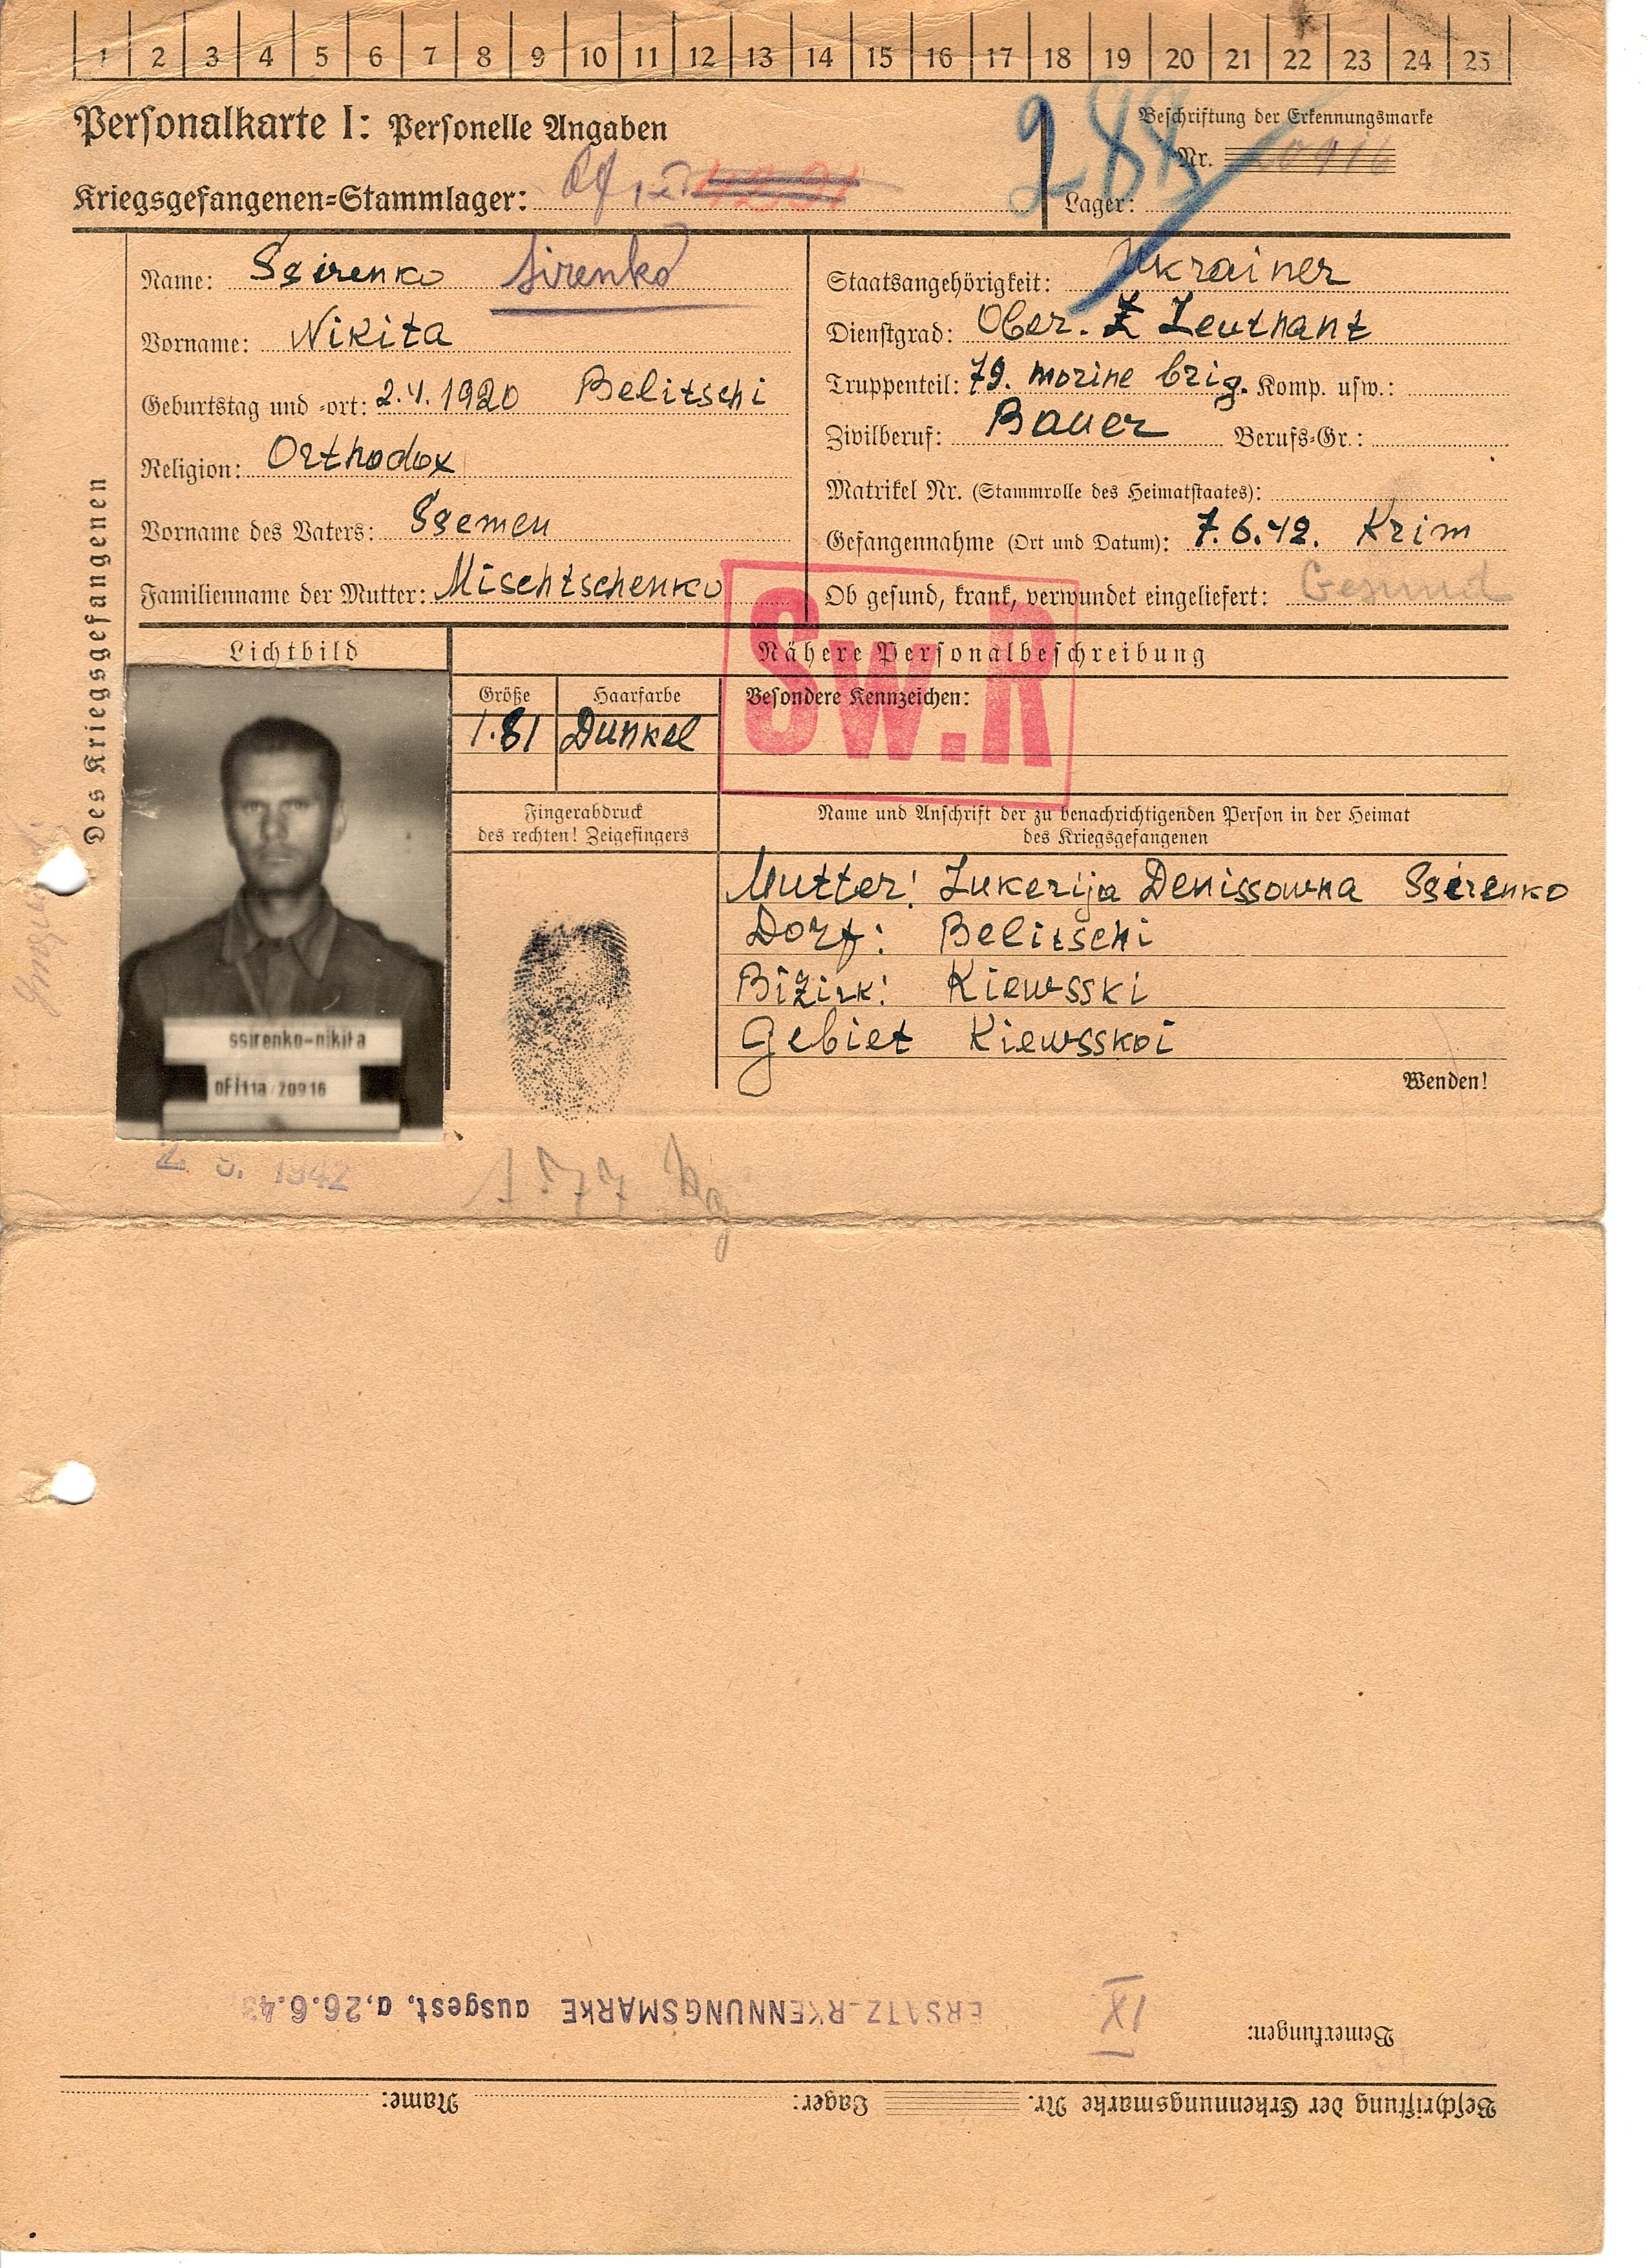 1 2 3 4 5 6 7 8 9 10 11 12 13 14 15 16 17 18 19 20 21 22 23 24 25
Personalkarte I: Personelle Angaben
Beschriftung der Erkennungsmarke
Nr. 20916
Kriegsgefangenen=Stammlager:
288
Lager:
Des Kriegsgefangenen
Name: Ssirenko Sirenko
Vorname: Nikita
Geburtstag und =ort: 2.4.1920 Belitschi
Religion: Orthodox
Vorname des Vaters: Ssemen
Familienname der Mutter: Mischtschenko
Staatsangehörigkeit: Ukrainer
Dienstgrad: Ober. Leuthant
Truppenteil: 79. marine brig. Komp. usw.:
Zivilberuf: Bauer Berufs=Gr.:
Matrikel Nr. (Stammrolle des Heimatstaates):
Gefangennahme (Ort und Datum): 7.6.42. Krim
Ob gesund, krank, verwundet eingeliefert: Gesund
Sw.R
Lichtbild
Nähere Personalbeschreibung
Größe Haarfarbe Besondere Kennzeichen:
1.81 Dunkel
Fingerabdruck
des rechten! Zeigefingers
Name und Anschrift der zu benachrichtigenden Person in der Heimat
des Kriegsgefangenen
Mutter: Lukerija Denissowna Ssirenko
Dorf: Belitschi
Bizirk: Kiewsski
Gebiet Kiewsskoi
ssirenko-nikita
ofl11a 20916
Wenden!
1942
77 kg
Bemerkungen: IX ERSATZ-RKENNUNGSMARKE ausgest. a. 26.6.43
Beschriftung der Erkennungsmarke Nr. Lager: Name: